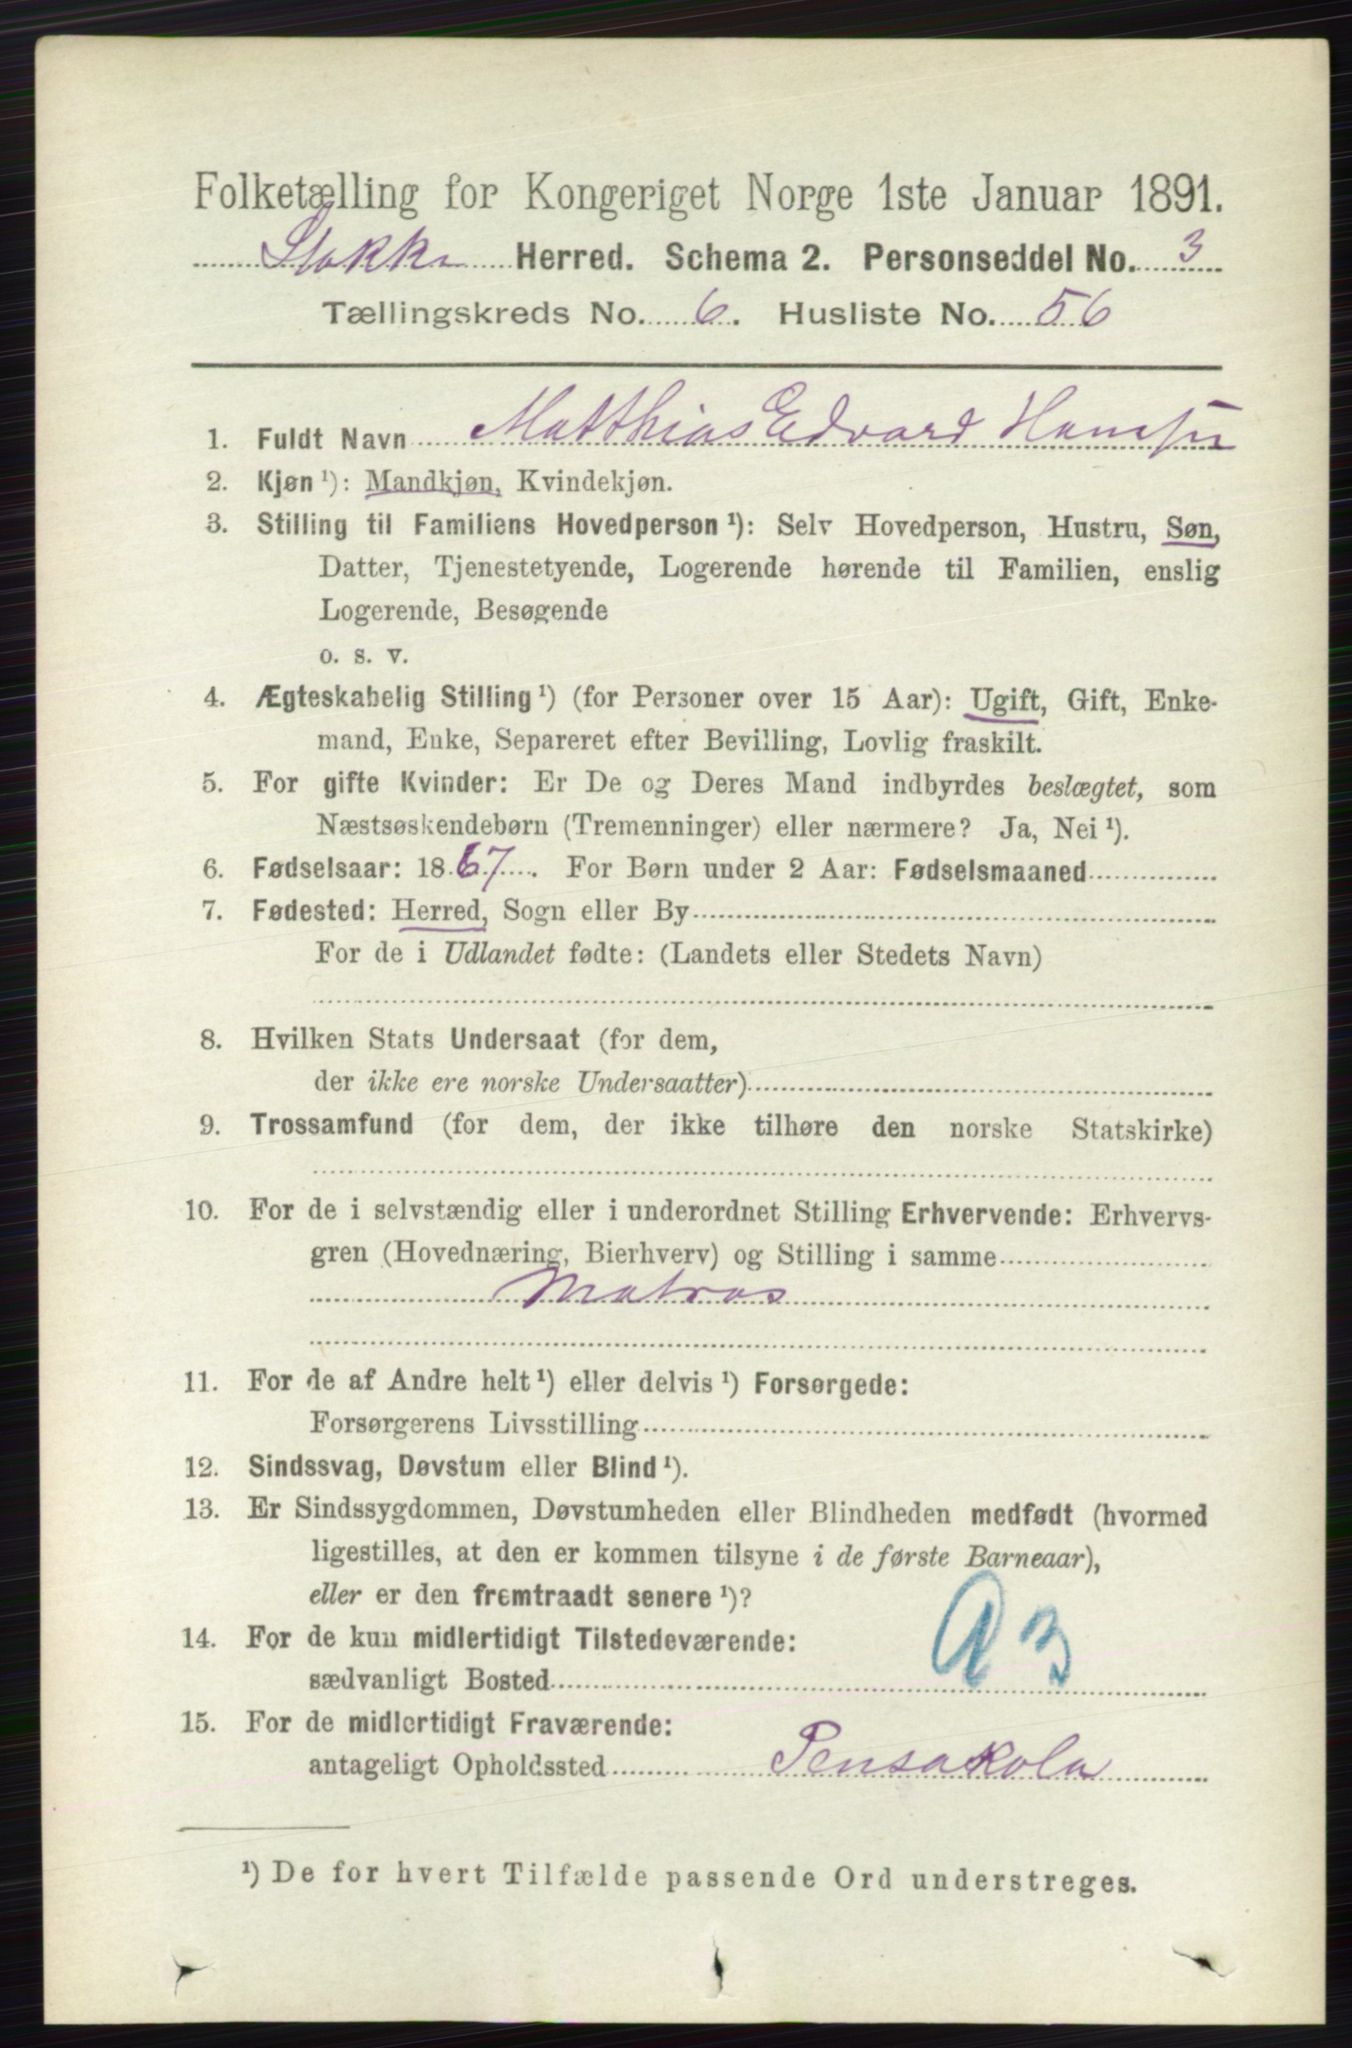 Folketælling for Kongeriget Norge 1ste Januar 1891.
Stokke Herred. Schema 2. Personseddel No. 3
Tællingskreds No. 6. Husliste No. 56
1. Fuldt Navn Matthias Edvard Hansen
2. Kjøn ¹): Mandkjøn, Kvindekjøn.
3. Stilling til Familiens Hovedperson ¹): Selv Hovedperson, Hustru, Søn,
Datter, Tjenestetyende, Logerende hørende til Familien, enslig
Logerende, Besøgende
o. s. v.
4. Ægteskabelig Stilling ¹) (for Personer over 15 Aar): Ugift, Gift, Enke-
mand, Enke, Separeret efter Bevilling, Lovlig fraskilt.
5. For gifte Kvinder: Er De og Deres Mand indbyrdes beslægtet, som
Næstsøskendebørn (Tremenninger) eller nærmere? Ja, Nei ¹).
6. Fødselsaar: 1867. For Børn under 2 Aar: Fødselsmaaned
7. Fødested: Herred, Sogn eller By
For de i Udlandet fødte: (Landets eller Stedets Navn)
8. Hvilken Stats Undersaat (for dem,
der ikke ere norske Undersaatter)
9. Trossamfund (for dem, der ikke tilhøre den norske Statskirke)
10. For de i selvstændig eller i underordnet Stilling Erhvervende: Erhvervs-
gren (Hovednæring, Bierhverv) og Stilling i samme
Matros
11. For de af Andre helt ¹) eller delvis ¹) Forsørgede:
Forsørgerens Livsstilling
12. Sindssvag, Døvstum eller Blind ¹).
13. Er Sindssygdommen, Døvstumheden eller Blindheden medfødt (hvormed
ligestilles, at den er kommen tilsyne i de første Barneaar),
eller er den fremtraadt senere ¹)?
14. For de kun midlertidigt Tilstedeværende:
sædvanligt Bosted
a 3
15. For de midlertidigt Fraværende:
antageligt Opholdssted Pensakola
¹) De for hvert Tilfælde passende Ord understreges.